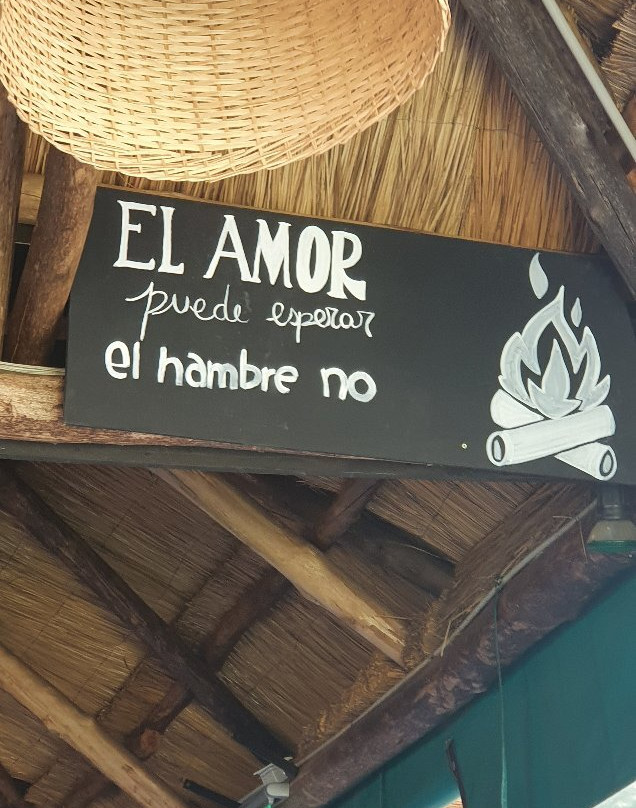 EL AMOR
puede esperar
el hambre no